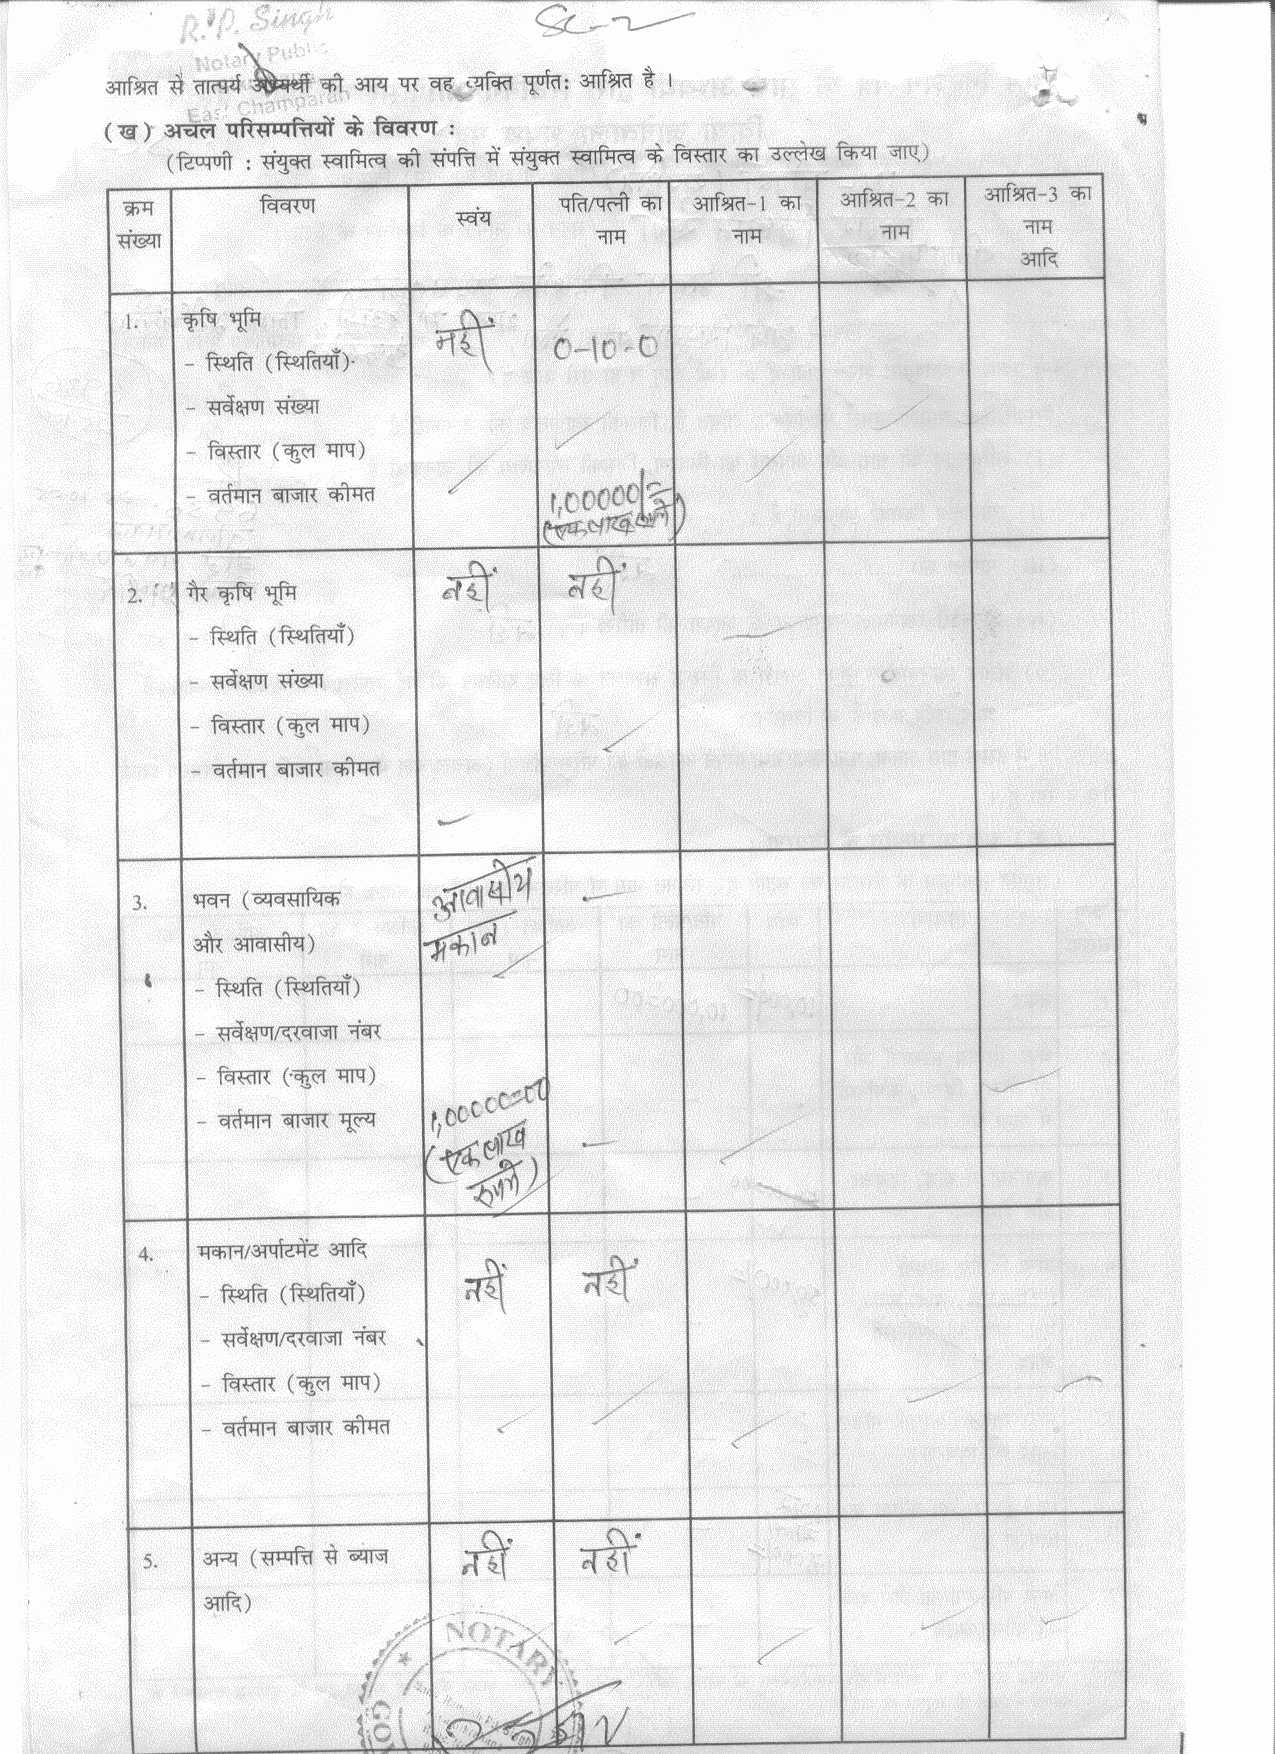 R.P. Singh
SC-2
Notary Public
East Champaran
आश्रित से तात्पर्य अभ्यर्थी की आय पर वह व्यक्ति पूर्णतः आश्रित है ।
(ख) अचल परिसम्पत्तियों के विवरण :
(टिप्पणी : संयुक्त स्वामित्व की संपत्ति में संयुक्त स्वामित्व के विस्तार का उल्लेख किया जाए)
क्रम संख्या विवरण स्वंय पति/पत्नी का नाम आश्रित-1 का नाम आश्रित-2 का नाम आश्रित-3 का नाम आदि
1. कृषि भूमि नहीं 0-10-0
- स्थिति (स्थितियाँ)
- सर्वेक्षण संख्या
- विस्तार (कुल माप)
- वर्तमान बाजार कीमत 1,00000/=
(एक लाख रूपये)
2. गैर कृषि भूमि नहीं नहीं
- स्थिति (स्थितियाँ)
- सर्वेक्षण संख्या
- विस्तार (कुल माप)
- वर्तमान बाजार कीमत
3. भवन (व्यवसायिक आवासीय
और आवासीय) मकान
- स्थिति (स्थितियाँ)
- सर्वेक्षण/दरवाजा नंबर
- विस्तार (कुल माप)
- वर्तमान बाजार मूल्य 1,00000=00
(एक लाख
रूपये)
4. मकान/अर्पाटमेंट आदि नहीं नहीं
- स्थिति (स्थितियाँ)
- सर्वेक्षण/दरवाजा नंबर
- विस्तार (कुल माप)
- वर्तमान बाजार कीमत
5. अन्य (सम्पत्ति से ब्याज नहीं नहीं
आदि)
NOTARY